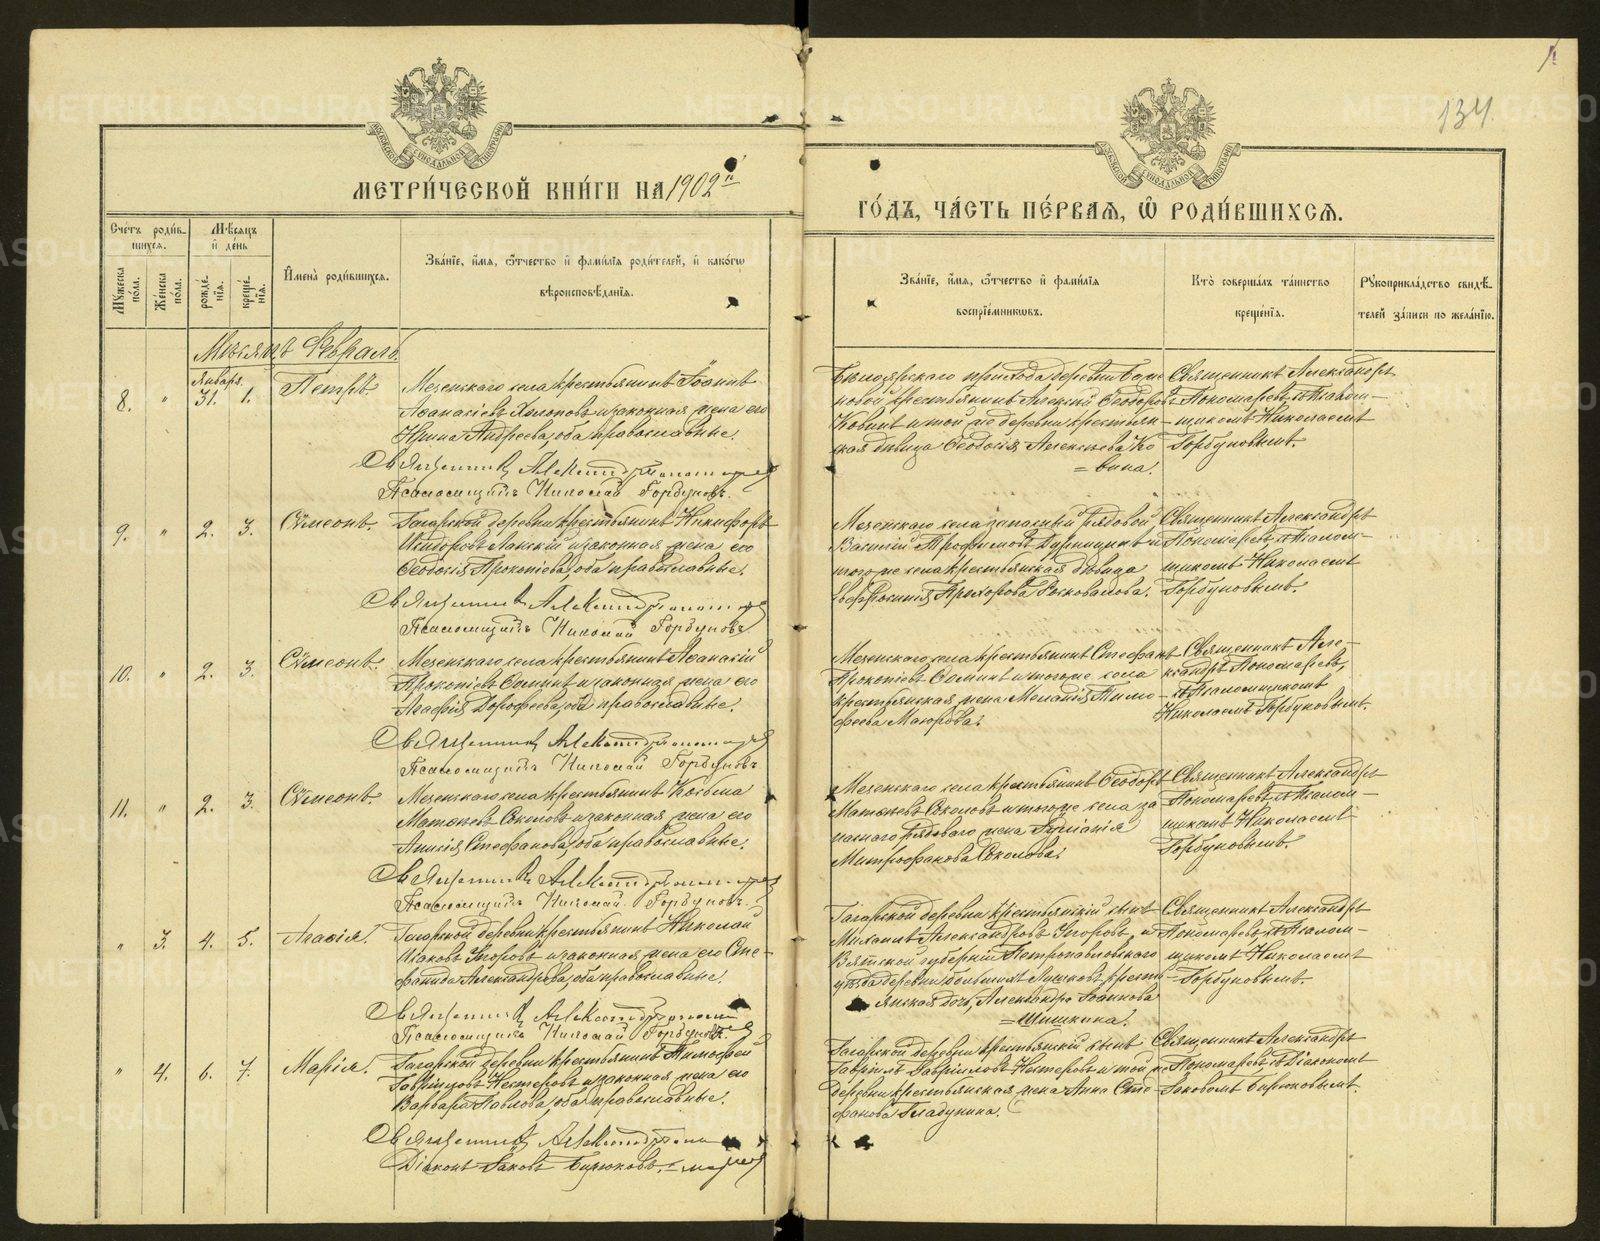 134.
МЕТРИ́ЧЕСКОЙ КНИ́ГИ НА 1902й
ГО́ДЪ, ЧА́СТЬ ПЕ́РВАЯ, Ѡ҆ РОДИ́ВШИХСѦ.
Сче́тъ роди́вшихсѧ.
Мѣ́сѧцъ и҆ де́нь
Мꙋ́жеска по́ла.
Же́нска по́ла.
рожде́нїѧ.
креще́нїѧ.
И҆мена̀ роди́вшихсѧ.
Зва́нїе, и҆́мѧ, ѻ҆́тчество и҆ фами́лїѧ роди́телей, и҆ како́гѡ
вѣроисповѣ́данїѧ.
Зва́нїе, и҆́мѧ, ѻ҆́тчество и҆ фами́лїѧ
воспрїе́мникѡвъ.
Кто̀ соверша́лъ та́инство
креще́нїѧ.
Рꙋкоприкла́дство свидѣ́-
телей за́писи по жела́нїю.
Мѣсяцъ Февраль.
8. " Января 31. 1. Петръ.
Мезенскаго села крестьянинъ Іоаннъ
Аѳанасіевъ Холоповъ и законная жена его
Ирина Андреева, оба православные.
Священникъ Александръ Пономаревъ
Псаломщикъ Николай Горбуновъ.
Бѣлоярскаго прихода деревни
новой крестьянинъ Алексій Ѳеодоровъ
Ковинъ и той же деревни крестьян-
ская дѣвица Ѳеодосія Алексѣева Ко
=вина.
Священникъ Александръ
Пономаревъ съ Псалом-
щикомъ Николаемъ
Горбуновымъ.
9. " 2. 3. Сѵмеонъ.
Гагарской деревни крестьянинъ Никифоръ
Исидоровъ Ланскій и законная жена его
Ѳеодосія Прокопіева, оба православные.
Священникъ Александръ Пономаревъ
Псаломщикъ Николай Горбуновъ
Мезенскаго села запасный рядовой
Василій Трофимовъ и
того же села крестьянская дѣвица
Евфросинія Прохорова Росковалова.
Священникъ Александръ
Пономаревъ съ Псалом-
щикомъ Николаемъ
Горбуновымъ.
10. " 2. 3. Сѵмеонъ.
Мезенскаго села крестьянинъ Аѳанасій
Прокопіевъ Соминъ и законная жена его
Агафія Дорофеева, оба православные.
Священникъ Александръ Пономаревъ
Псаломщикъ Николай Горбуновъ
Мезенскаго села крестьянинъ Стефанъ
Прокопіевъ Соминъ и того же села
крестьянская жена Меланія Тимо-
феева Маюрова.
Священникъ Але-
ксандръ Пономаревъ,
съ Псаломщикомъ
Николаемъ Горбуновымъ.
11. " 2. 3. Сѵмеонъ.
Мезенскаго села крестьянинъ Косьма
Матѳеевъ Соколовъ и законная жена его
Анисія Стефанова, оба православные.
Священникъ Александръ Пономаревъ
Псаломщикъ Николай Горбуновъ.
Мезенскаго села крестьянинъ Ѳеодоръ
Матѳеевъ Соколовъ и того же села за
паснаго рядоваго жена
Митрофанова Соколова.
Священникъ Александръ
Пономаревъ съ Псалом-
щикомъ Николаемъ
Горбуновымъ.
" 3. 4. 5. Агаѳія.
Гагарской деревни крестьянинъ Николай
Іаковъ Егоровъ и законная жена его Сте-
фанида Александрова, оба православные.
Священникъ Александръ Пономаревъ
Псаломщикъ Николай Горбуновъ.
Гагарской деревни крестьянскій сынъ
Михаилъ Александровъ Егоровъ, и
Вятской губерніи Петропавловскаго
уѣзда деревни крестьянская дочь, Александра Іоаннова
=Шишкина.
Священникъ Александръ
Пономаревъ съ Псалом-
щикомъ Николаемъ
Горбуновымъ.
" 4. 6. 7. Марія.
Гагарской деревни крестьянинъ Тимофей
Гавриловъ Нестеровъ и законная жена его
Варвара Павлова, оба православные.
Священникъ Александръ Пономаревъ
Діаконъ Іаковъ Бирюковъ.
Гагарской деревни крестьянскій сынъ
Гавріилъ Гавриловъ Нестеровъ и той же
деревни крестьянская жена Анна Сте-
фанова Гладунина.
Священникъ Александръ
Пономаревъ съ Діакономъ
Іаковомъ Бирюковымъ.
METRIKI.GASO-URAL.RU